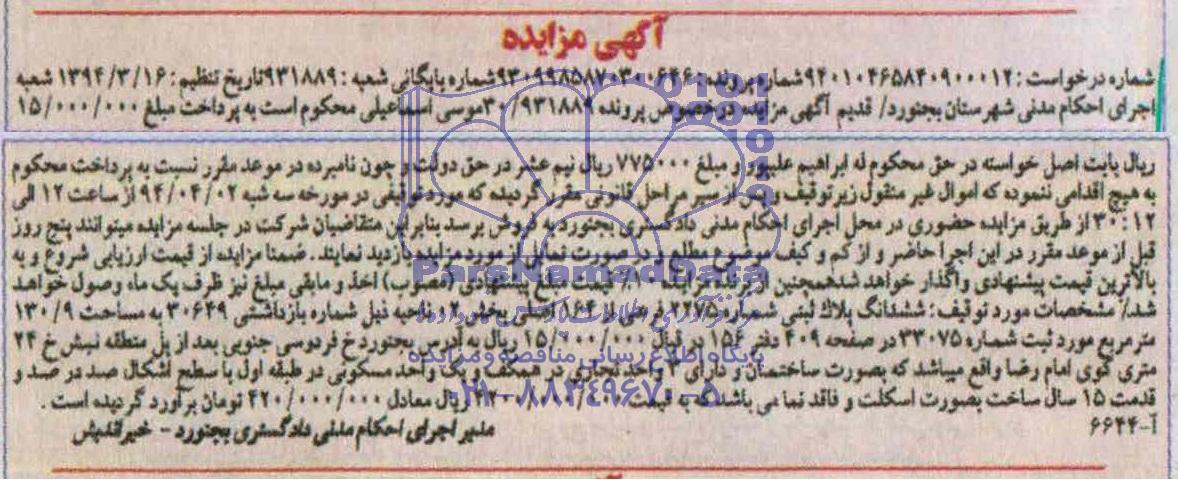 آگهی مزایده
شماره درخواست : ۹۴۰۱۰۴۶۵۸۴۰۹۰۰۰۱۲ شماره پرونده : ۹۳۰۹۹۸۵۸۷۰۳۰۰۶۴۶ شماره بایگانی شعبه : ۹۳۱۸۸۹ تاریخ تنظیم : ۱۳۹۴/۳/۱۶ شعبه
اجرای احکام مدنی شهرستان بجنورد/ قدیم آگهی مزایده در خصوص پرونده ۳۰/۹۳۱۸۸۹ موسی اسماعیلی محکوم است به پرداخت مبلغ ۱۵/۰۰۰/۰۰۰
ریال بابت اصل خواسته در حق محکوم له ابراهیم علیپور و مبلغ ۷۷۵۰۰۰ ریال نیم عشر در حق دولت و چون نامبرده در موعد مقرر نسبت به پرداخت محکوم
به هیچ اقدامی ننموده که اموال غیر منقول زیر توقیف و پس از سیر مراحل قانونی مقرر گردیده که مورد توقیفی در مورخه سه شنبه ۹۴/۰۴/۰۲ از ساعت ۱۲ الی
۱۲:۳۰ از طریق مزایده حضوری در محل اجرای احکام مدنی دادگستری بجنورد به فروش برسد بنابراین متقاضیان شرکت در جلسه مزایده میتوانند پنج روز
قبل از موعد مقرر در این اجرا حاضر و از کم و کیف موضوع مطلع و در صورت تمایل از مورد مزایده بازدید نمایند . ضمنا مزایده از قیمت ارزیابی شروع و به
بالاترین قیمت پیشنهادی واگذار خواهد شد همچنین از برنده مزایده ۱۰٪ قیمت مبلغ پیشنهادی (مصوب) اخذ و مابقی مبلغ نیز ظرف یک ماه وصول خواهد
شد/ مشخصات مورد توقیف : ششدانگ پلاک ثبتی شماره ۲۲۷۵ فرعی از ۱۶۴ اصلی بخش ۲ ناحیه ذیل شماره بازداشتی ۳۰۶۴۹ به مساحت ۱۳۰/۹
متر مربع مورد ثبت شماره ۳۳۰۷۵ در صفحه ۴۰۹ دفتر ۱۵۶ در قبال ۱۵/۰۰۰/۰۰۰ ریال به آدرس بجنورد خ فردوسی جنوبی بعد از پل منطقه نبش خ ۲۴
متری کوی امام رضا واقع میباشد که بصورت ساختمان و دارای ۳ واحد تجاری در همکف و یک واحد مسکونی در طبقه اول با سطح اشکال صد در صد و
قدمت ۱۵ سال ساخت بصورت اسکلت و فاقد نما می باشد که به قیمت ریال معادل ۴۲۰/۰۰۰/۰۰۰ تومان برآورد گردیده است .
آ-۶۶۴۴
مدیر اجرای احکام مدنی دادگستری بجنورد - خیراندیش
ParsNamadData
پایگاه اطلاع رسانی مناقصه و مزایده
۰۲۱-۸۸۳۴۹۶۷۰-۵